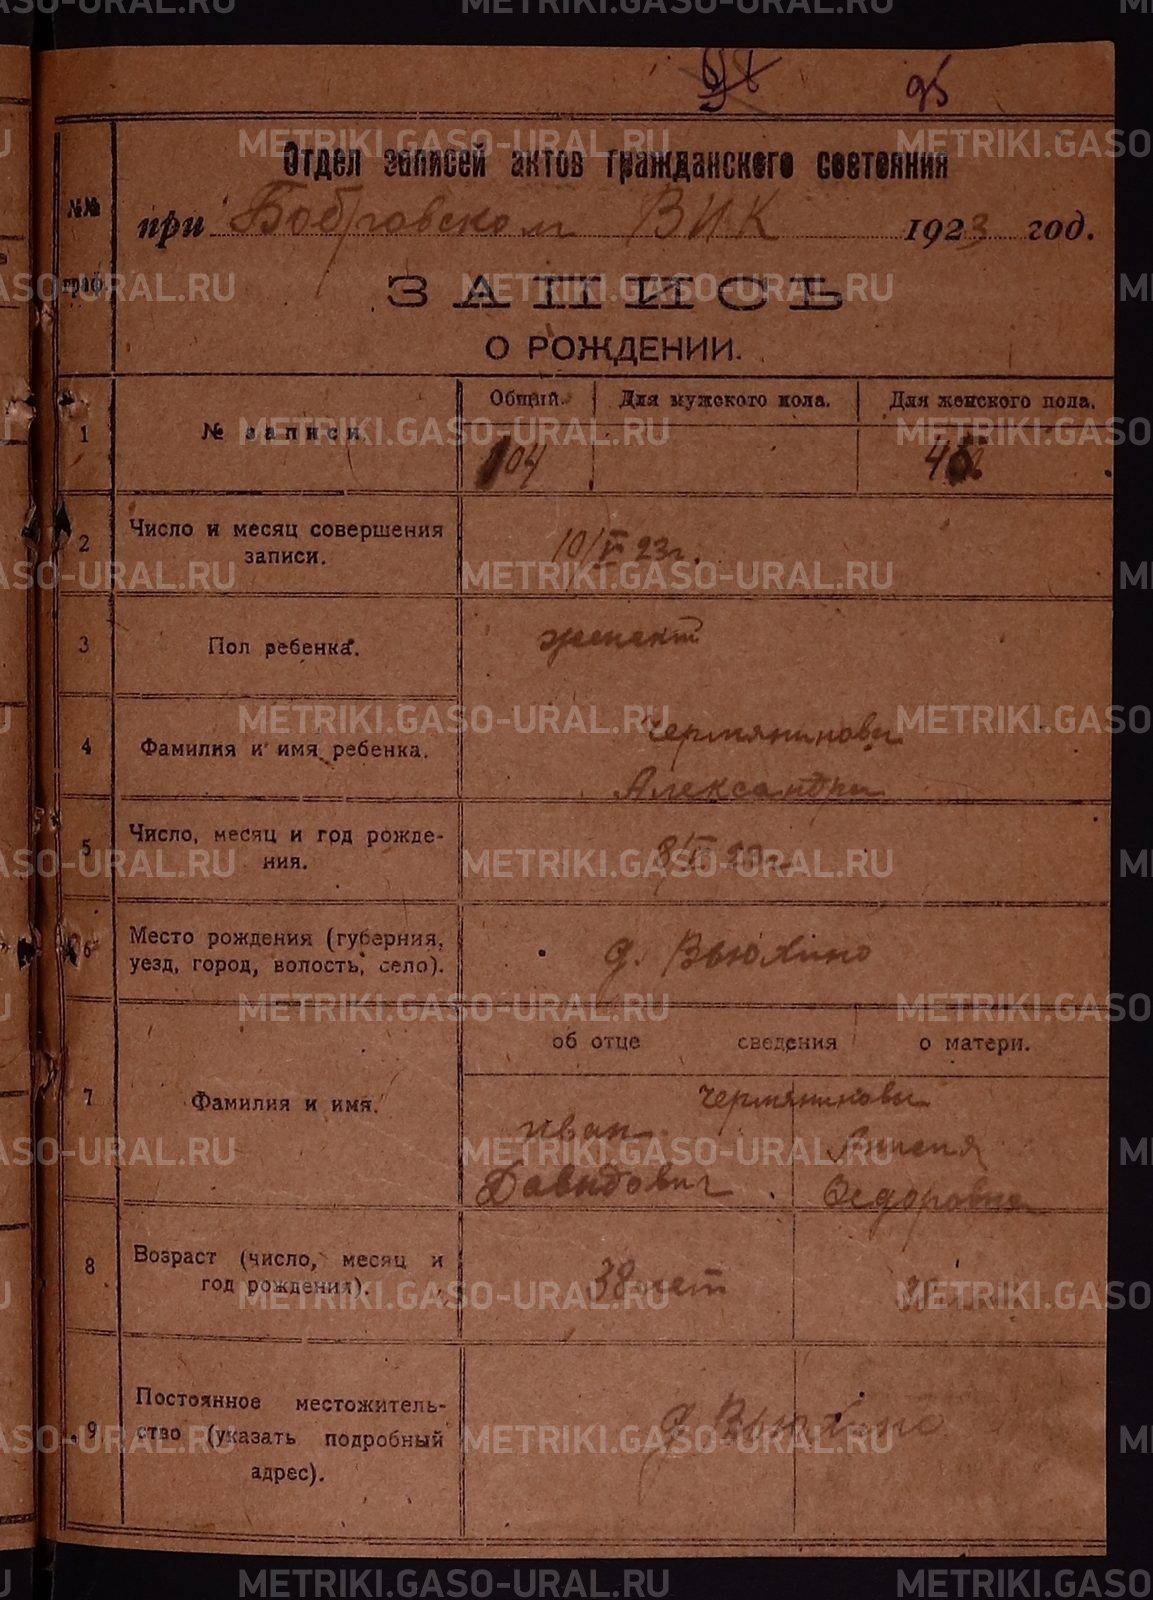 95
Отдел записей актов гражданского состояния
№№ граф.
при Бобровском ВИК 1923 год.
ЗАПИСЬ
О РОЖДЕНИИ.
1 № записи Общий. Для мужского пола. Для женского пола.
104
2 Число и месяц совершения записи. 10/V 23г.
3 Пол ребенка. женск
4 Фамилия и имя ребенка. Чермянинова
Александра
5 Число, месяц и год рождения. 8/V 23г
6 Место рождения (губерния, уезд, город, волость, село). д. Вьюхино
об отце сведения о матери.
7 Фамилия и имя. Чермяниновы
Иван
Давидович Федоровна
8 Возраст (число, месяц и год рождения). 38 лет
9 Постоянное местожительство (указать подробный адрес). д Вьюхино
METRIKI.GASO-URAL.RU